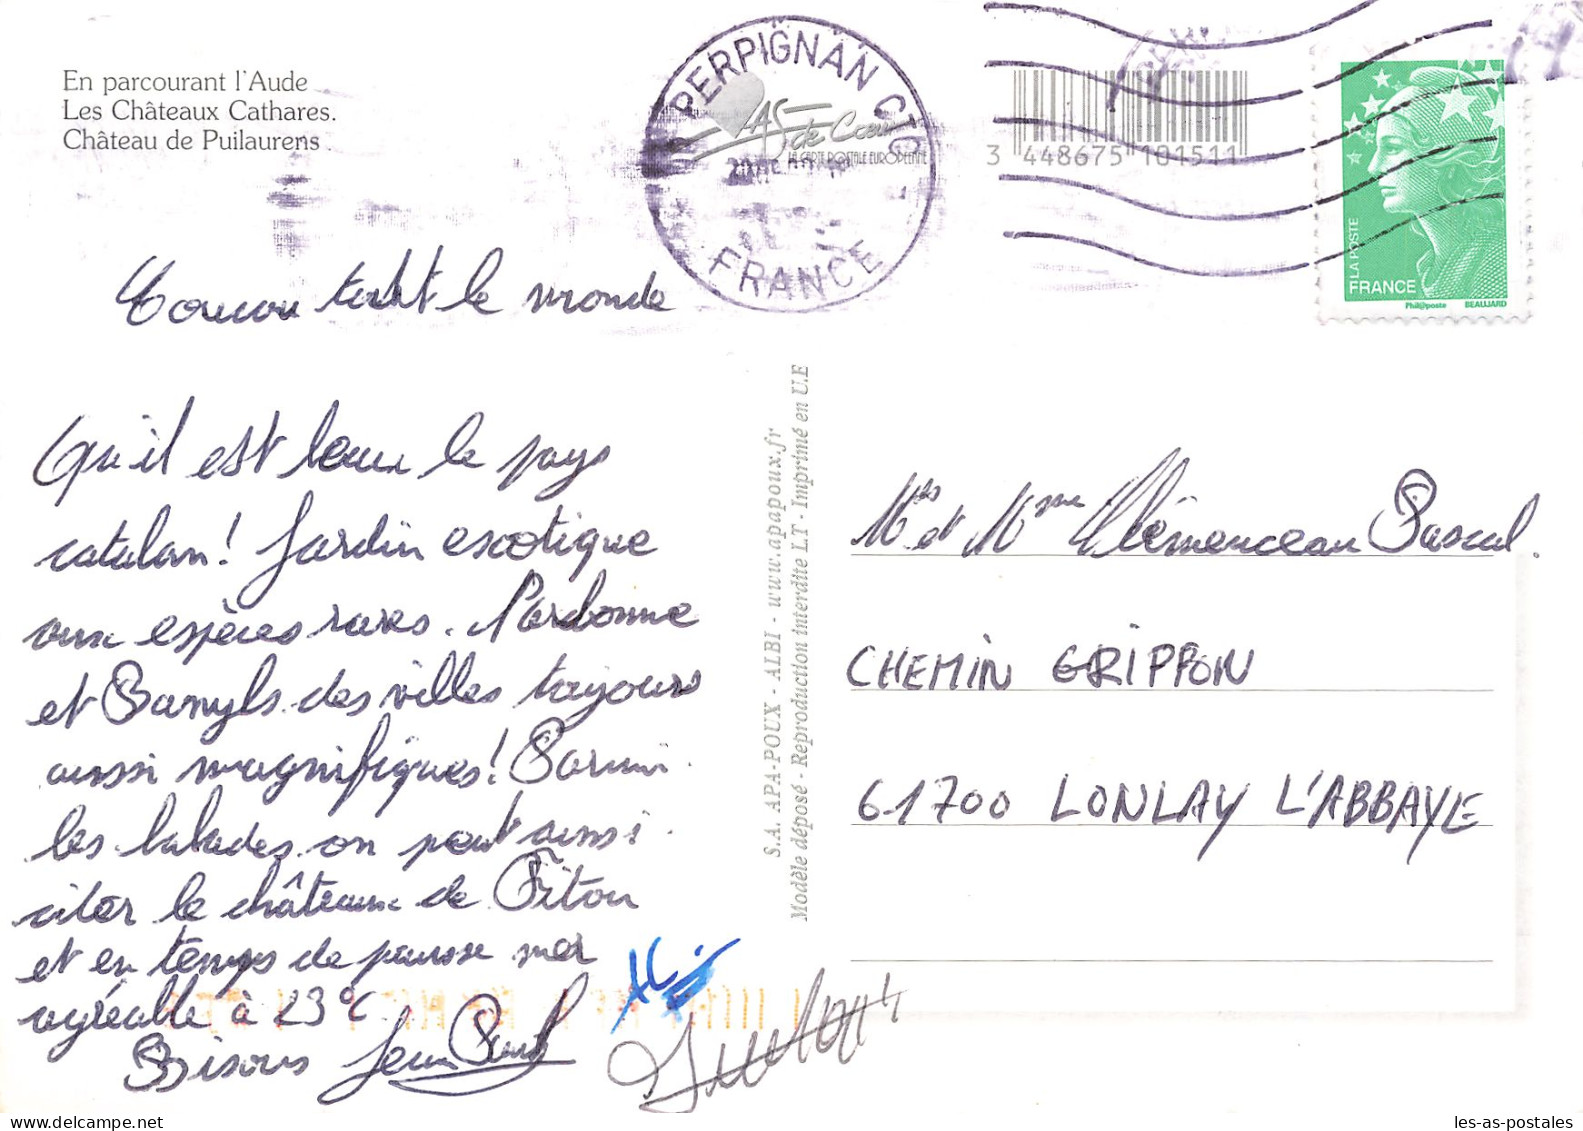 En parcourant l'Aude
Les Châteaux Cathares.
Château de Puilaurens
PERPIGNAN CTC
FRANCE
AS de Cœur
LA CARTE POSTALE EUROPÉENNE
3 448675 101511
LA POSTE
FRANCE
Phil@poste BEAUJARD
Coucou tout le monde
Qu'il est beau le pays
catalan! Jardin exotique
aux espèces rares. Narbonne
et Banyls des villes toujours
aussi magnifiques! Parmi
les balades on peut aussi
citer le château de Fitou
et en temps de pause mer
agréable à 23°C
Bisous Jean Paul
S.A. APA-POUX - ALBI - www.apapoux.fr
Modèle déposé - Reproduction interdite LT - Imprimé en U.E
Mrs et Mme Clémenceau Pascal.
CHEMIN GRIPPON
61700 LONLAY L'ABBAYE
les-as-postales